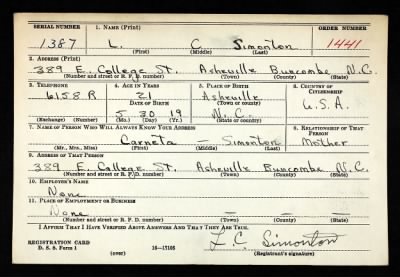 SERIAL NUMBER 1. NAME (Print) ORDER NUMBER
1387 L. C. Simonton 1441
(First) (Middle) (Last)
2. ADDRESS (Print)
389 E. College St. Asheville Buncombe N.C.
(Number and street or R. F. D. number) (Town) (County) (State)
3. TELEPHONE 4. AGE IN YEARS 5. PLACE OF BIRTH 6. COUNTRY OF CITIZENSHIP
6158 R 21 Asheville
DATE OF BIRTH (Town or county) U.S.A.
5 30 19 N.C.
(Exchange) (Number) (Mo.) (Day) (Yr.) (State or country)
7. NAME OF PERSON WHO WILL ALWAYS KNOW YOUR ADDRESS 8. RELATIONSHIP OF THAT PERSON
Carneta — Simonton Mother
(Mr., Mrs., Miss) (First) (Middle) (Last)
9. ADDRESS OF THAT PERSON
389 E. College St. Asheville Buncombe N.C.
(Number and street or R. F. D. number) (Town) (County) (State)
10. EMPLOYER'S NAME
None
11. PLACE OF EMPLOYMENT OR BUSINESS
None — — —
(Number and street or R. F. D. number) (Town) (County) (State)
I AFFIRM THAT I HAVE VERIFIED ABOVE ANSWERS AND THAT THEY ARE TRUE.
REGISTRATION CARD L.C. Simonton
D. S. S. Form 1 (over) 16—17105 (Registrant's signature)